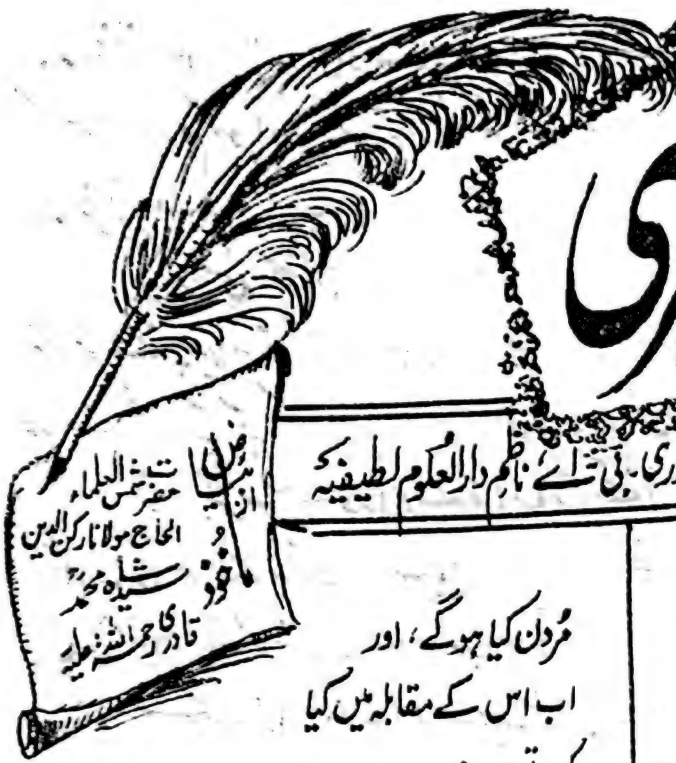 دری۔ بی اے ناظم دار العلوم لطیفیہ
ماخوذ از بیاض
حضرت شمس العلماء
الحاج مولانا رکن الدین
سید شاہ محمد
قادری رحمۃ اللہ علیہ
مُردن کیا ہوگے، اور
اب اس کے مقابلہ میں کیا